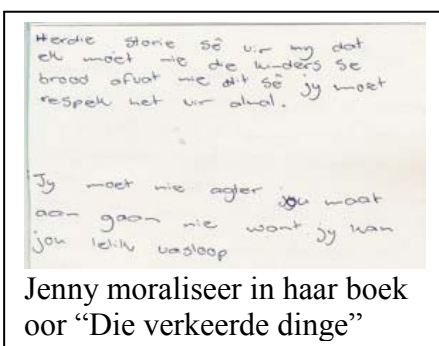 Herdie storie sê vir my dat
ek moet nie die kinders se
brood afvat nie dit sê jy moet
respek het vir almal.
Jy moet nie agter jou maat
aan gaan nie want jy kan
jou lelik vasloop
Jenny moraliseer in haar boek
oor “Die verkeerde dinge”